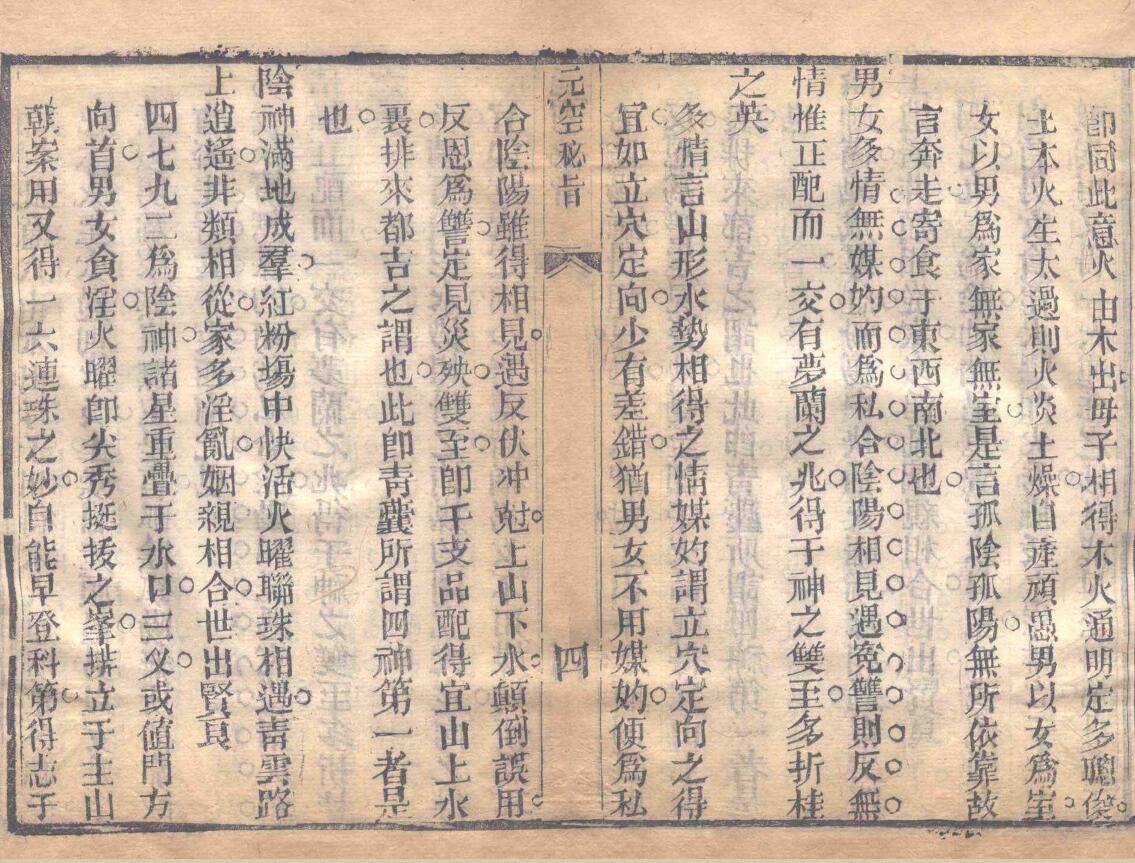 即同此意火由木出母子相得木火通明定多聰俊
土本火生太過則火炎土燥自產頑愚男以女爲室
女以男爲家無家無室是言孤陰孤陽無所依靠故
言奔走寄食于東西南北也
男女多情無媒妁而爲私合陰陽相見遇冤讐則反無
情惟正配而一交有夢蘭之兆得干神之雙至多折桂
之英
多情言山形水勢相得之情媒妁謂立穴定向之得
宜如立穴定向少有差錯猶男女不用媒妁便爲私
元空秘旨
四
合陰陽雖得相見遇反伏冲尅上山下水顛倒誤用
反恩爲讐定見災殃雙至即干支品配得宜山上水
裏排來都吉之謂也此即青囊所謂四神第一者是
也
陰神滿地成羣紅粉塲中快活火曜聯珠相遇青雲路
上逍遙非類相從家多淫亂姻親相合世出賢良
四七九二爲陰神諸星重疊于水口三义或値門方
向首男女貪淫火曜即尖秀挺拔之峯排立于主山
朝案用又得一六連珠之妙自能早登科第得志于